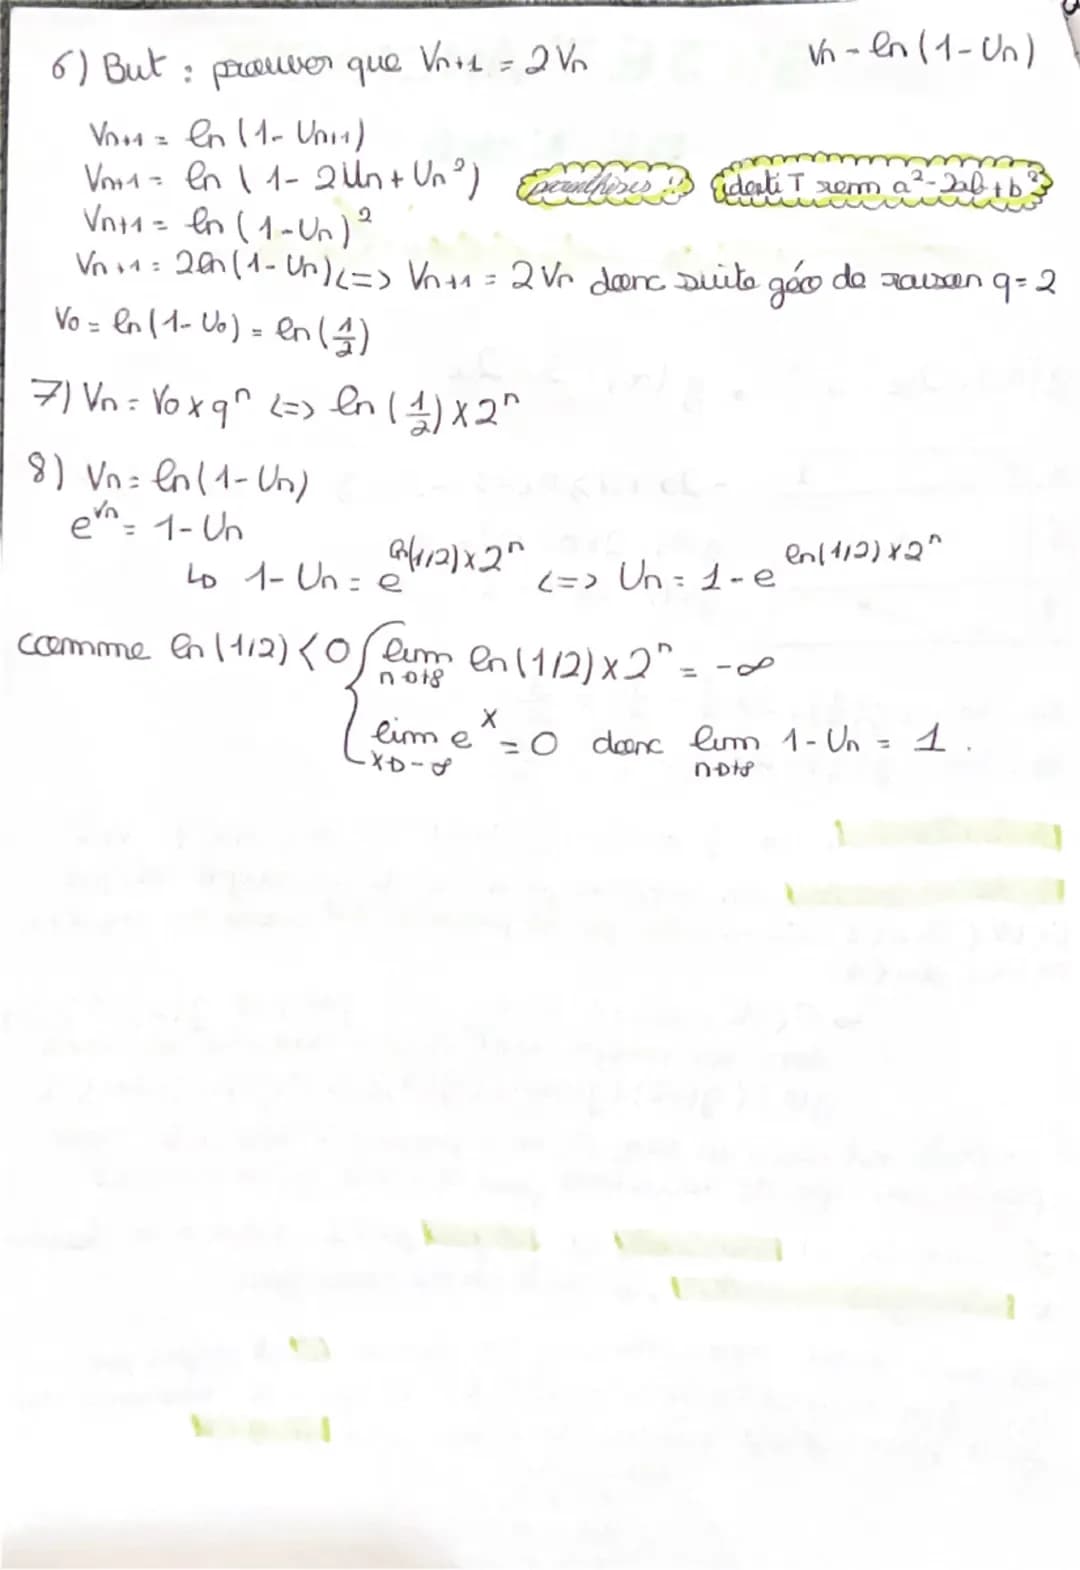 6) But : prouver que Vn+1 = 2Vn
Vn - ln(1-Un)
Vn+1 = ln(1-Un+1)
Vn+1 = ln(1-2Un+Un²) parenthèses ! identiT rem a²-2ab+b²
Vn+1 = ln(1-Un)²
Vn+1 = 2ln(1-Un) <=> Vn+1 = 2Vn donc suite géo de raison q=2
V0 = ln(1-U0) = ln(1/2)
7) Vn = V0 x qⁿ <=> ln(1/2) x 2ⁿ
8) Vn = ln(1-Un)
e^Vn = 1-Un
↳ 1-Un = e^ln(1/2)x2ⁿ <=> Un = 1-e^ln(1/2)x2ⁿ
comme ln(1/2)<0 { lim n→+∞ ln(1/2)x2ⁿ = -∞
lim x→-∞ e^x = 0 donc lim n→+∞ 1-Un = 1.